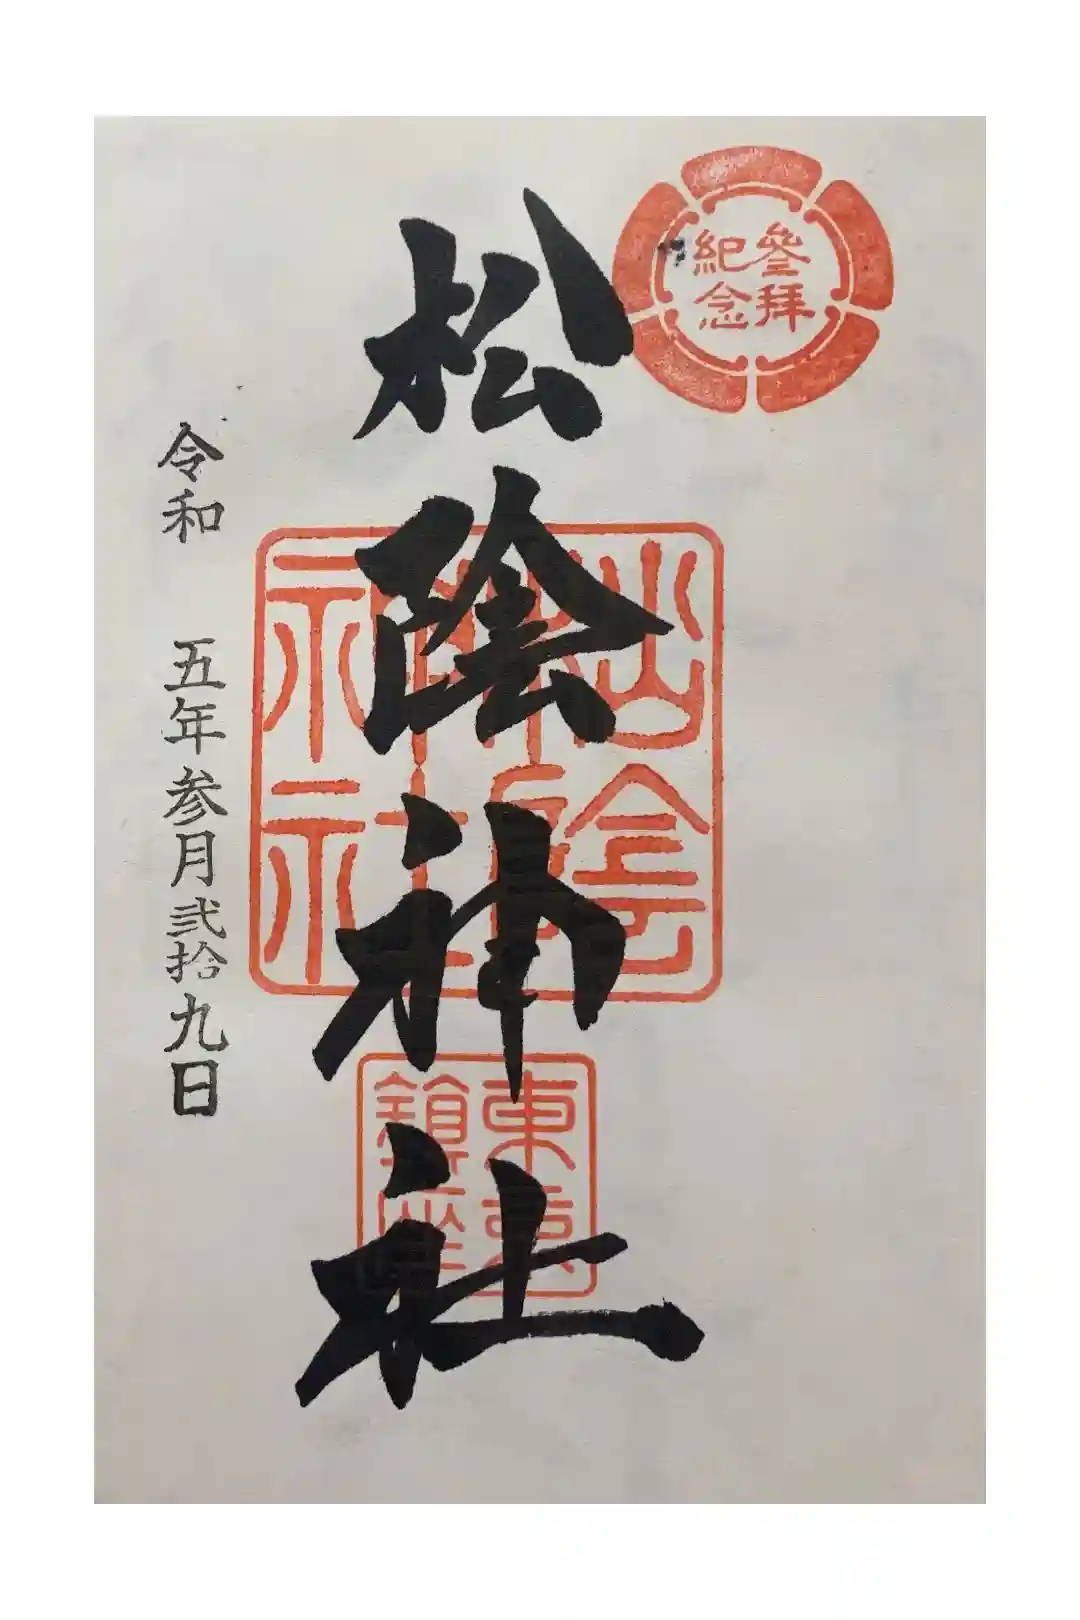 參拝
紀念
松陰神社
松陰
神社
東京
鎮座
令和 五年参月弐拾九日